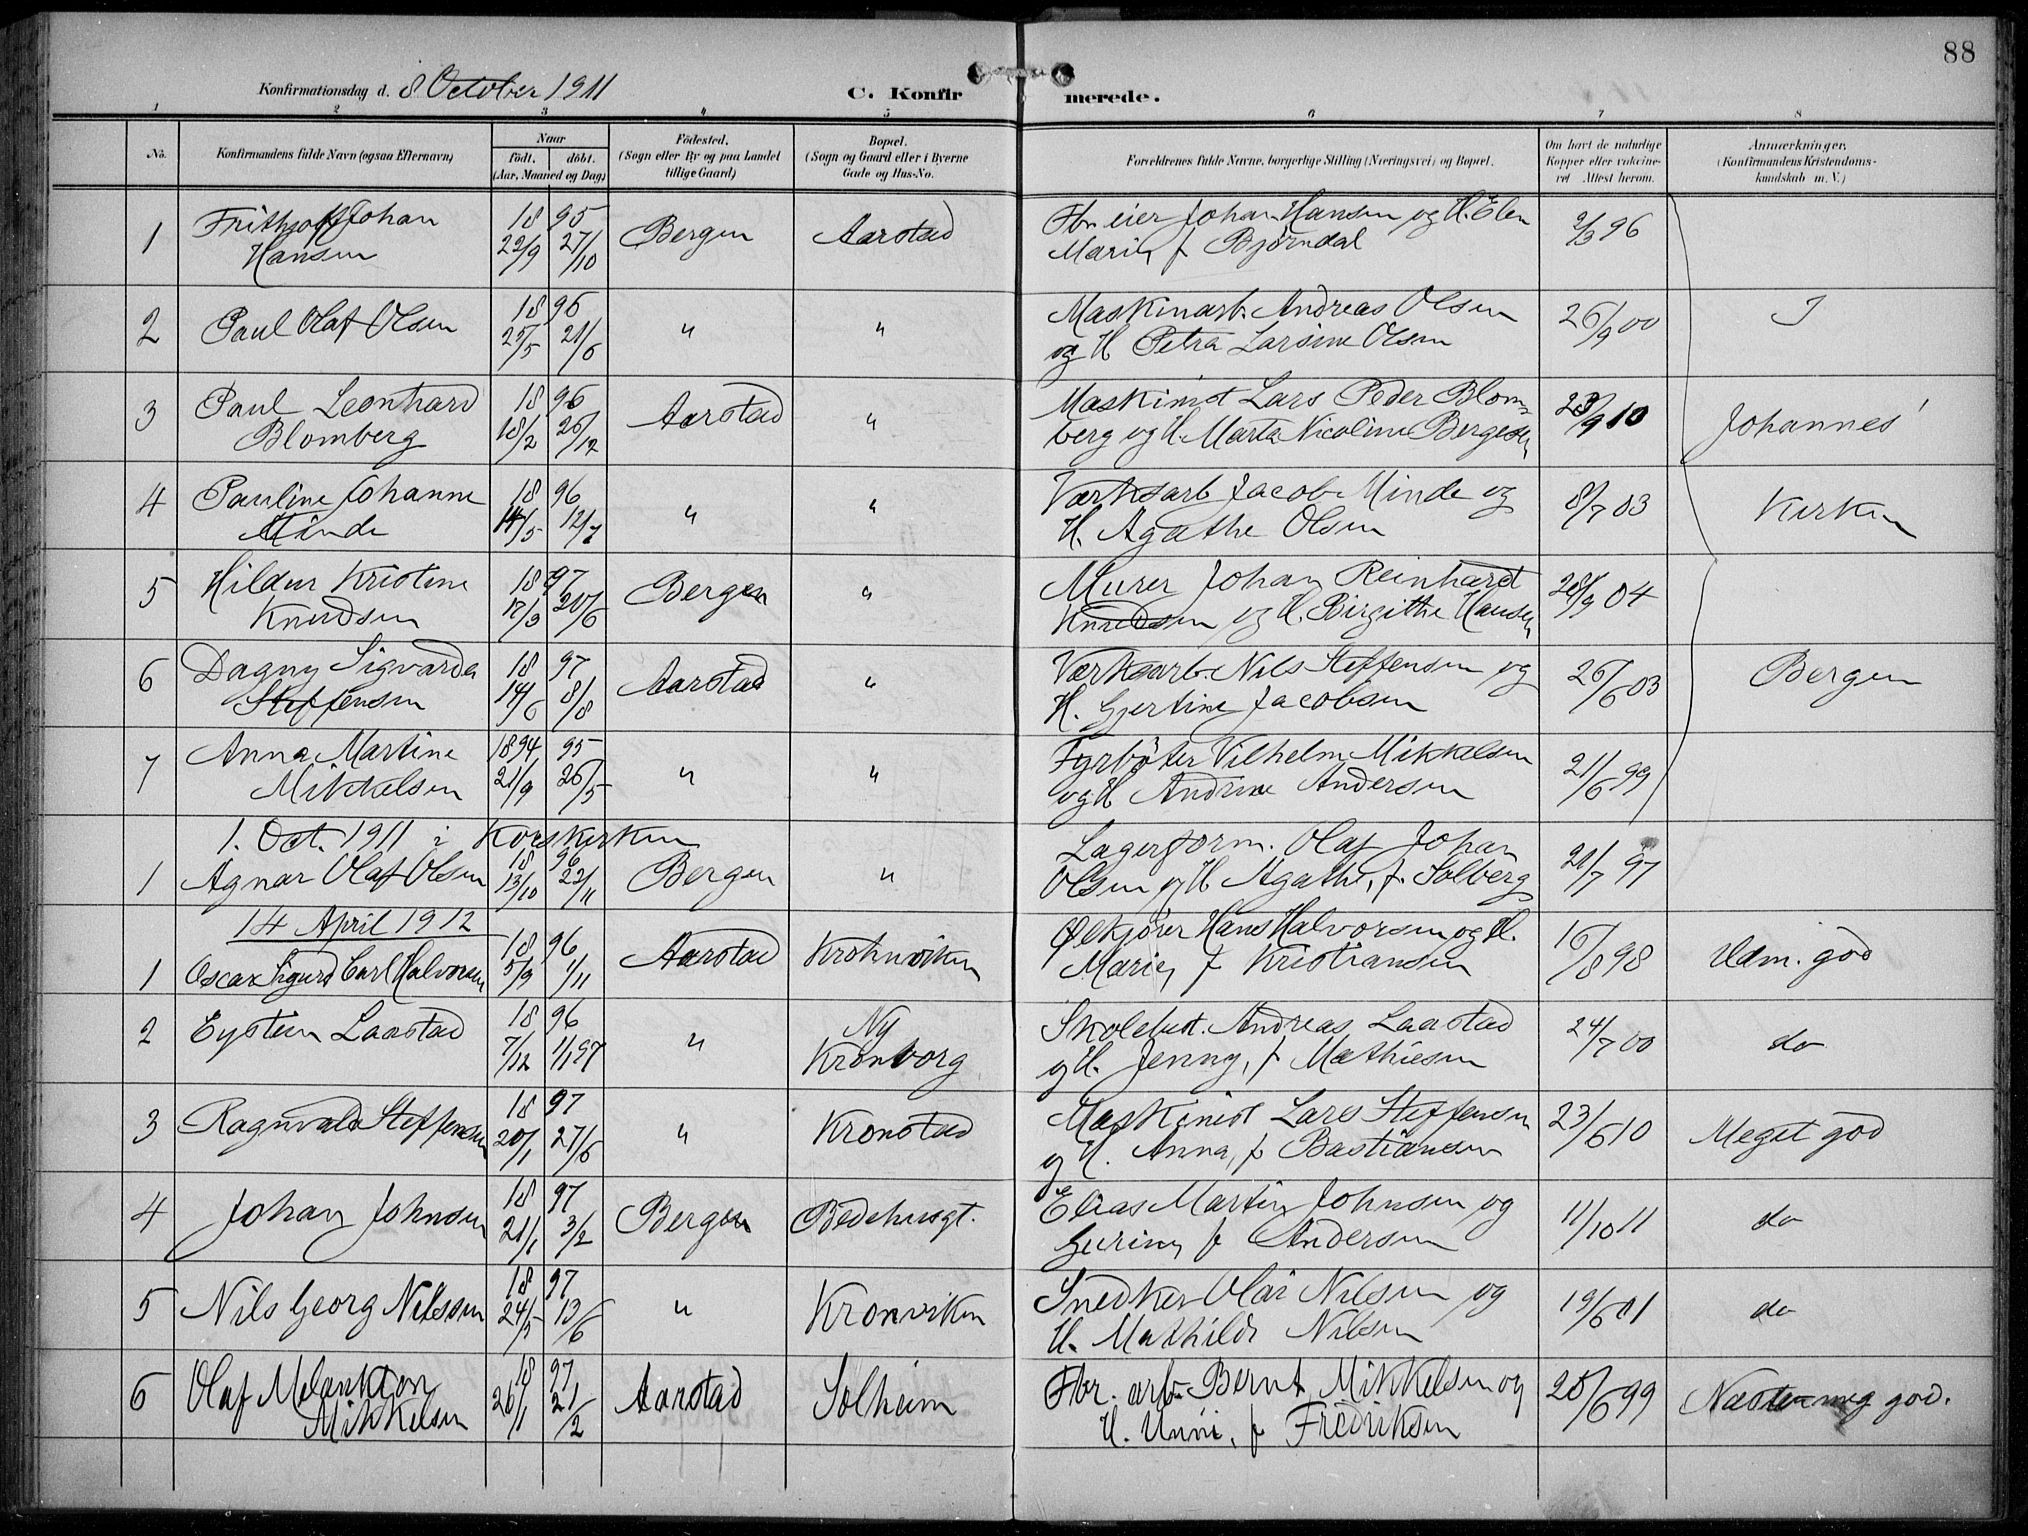 88
Konfirmationsdag d. 8 October 1911
C. Konfirmerede.
1 2 3 4 5 6 7 8
No.
Konfirmandens fulde Navn (ogsaa Efternavn)
Naar
födt. döbt.
(Aar, Maaned og Dag)
Födested.
(Sogn eller By og paa Landet
tillige Gaard)
Bopæl.
(Sogn og Gaard eller i Byerne
Gade og Hus-No.
Forældrenes fulde Navne, borgerlige Stilling (Næringsvei) og Bopæl.
Om havt de naturlige
Kopper eller vakcine-
ret Attest herom.
Anmærkninger.
(Konfirmandens Kristendoms-
kundskab m. V.)
1 Frithjof Johan Hansen 18 95 22/9 27/10 Bergen Aarstad
Fbr. eier Johan Hansen og H. Elen
Marie, f Bjørndal
2/3 96
2 Paul Olaf Olsen 18 96 25/5 21/6 " "
Maskinarb. Andreas Olsen
og H Petra Larsine Olsen
26/9 00 I
3 Paul Leonhard
Blomberg 18 96 18/2 26/12 Aarstad "
Maskinist Lars Peder Blom-
berg og H. Marta Nicoline Bergesen
23/9 10 Johannes'
4 Pauline Johanne
Minde 18 96 14/5 12/7 " "
Værksarb Jacob Minde og
H. Agathe Olsen
8/7 03 Kirken
5 Hildur Kristine
Knudsen 18 97 17/3 20/6 Bergen "
Murer Johan Reinhardt
Knudsen og H. Birgithe Hansen
28/9 04
6 Dagny Sigvarda
Steffensen 18 97 14/6 8/8 Aarstad "
Værksarb. Nils Steffensen og
H. Gjertine Jacobsen
26/6 03 Bergen
7 Anna Martine
Mikkelsen 1894 95 21/9 26/5 " "
Fyrbøter Vilhelm Mikkelsen
og H Andrine Andersen
21/6 99
1. Oct. 1911 i Korskirken
1 Agnar Olaf Olsen 18 96 13/10 22/11 Bergen "
Lagerform. Olaf Johan
Olsen og H Agathe, f. Solberg
21/7 97
14 April 1912
1 Oscar Sigurd Carl Halvorsen 18 96 5/9 1/11 Aarstad Krohnviken
Ølkjører Hans Halvorsen og H.
Marie, f Kristiansen
16/8 98 Udm. god
2 Eystein Laastad 18 96 7/12 1/1 97 " Ny
Kronborg
Skolebest. Andreas Laastad
og H. Jenny, f Mathiesen
24/7 00 do
3 Ragnvald Steffensen 18 97 20/1 27/6 " Kronstad
Maskinist Lars Steffensen
og H. Anna, f Bastiansen
23/6 10 Meget god
4 Johan Johnsen 18 97 21/1 3/2 Bergen Bedehusgt.
Elias Martin Johnsen og
Gurine, f Andersen
11/10 11 do
5 Nils Georg Nilssen 18 97 24/5 13/6 " Kronviken
Snedker Olai Nilsen og
H. Mathilde Nilsen
19/6 01 do
6 Olaf Melankton
Mikkelsen 18 97 26/1 21/2 Aarstad Solheim
Fbr. arb. Bernt Mikkelsen og
H. Unni, f Fredriksen
25/6 99 Næsten meg god.